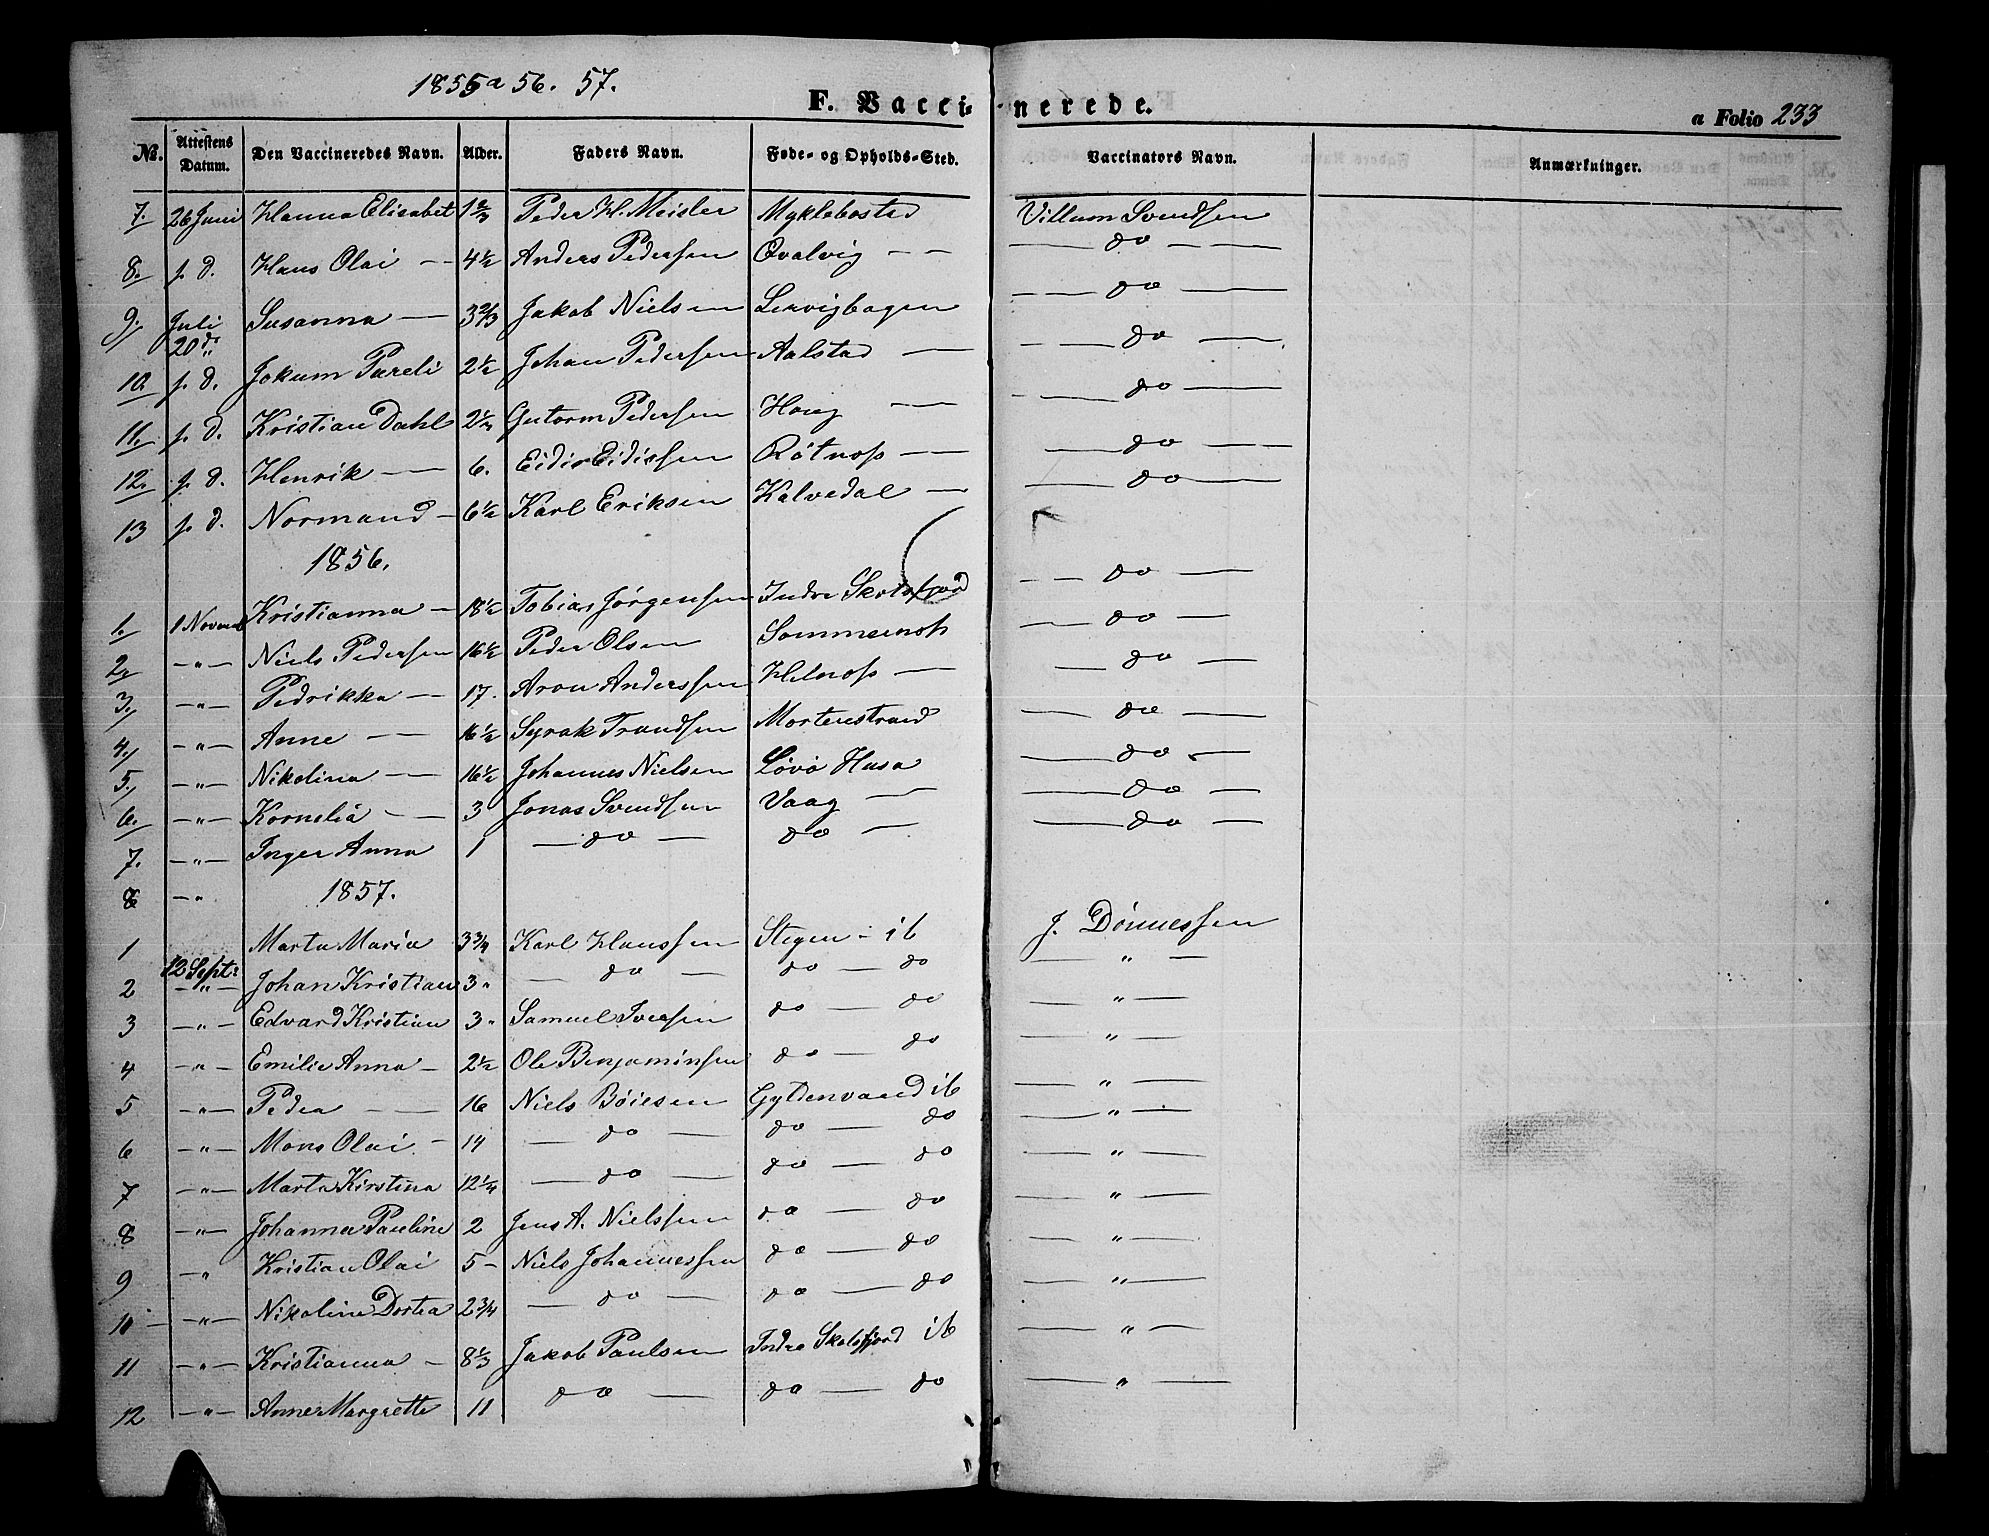 1855 a 56. 57.
F. Vaccinerede.
a Folio 233
No. Attestens Datum. Den Vaccineredes Navn. Alder. Faders Navn. Føde- og Opholds-Sted. Vaccinators Navn. Anmærkninger.
7. 26 Juni Hanna Elisabet 1 2/3 Peder H. Meisler Myklebostad Villum Svendsen
8. s. d. Hans Olai — 4 1/2 Anders Pedersen Qvalvig — — — do — —
9. Juli 20de Susanna — 3 2/3 Jakob Nielsen Lervigbogen — do —
10. s. d. Jokum Pareli 2 1/2 Johan Pedersen Aalstad — — do —
11. s. d. Kristian Dahl 2 1/2 Gutorm Pedersen Houg — — do —
12. s. d. Henrik — 6. Eidis Eidissen Røtnøs — — do —
13 s. d. Normand — 6 1/2 Karl Eriksen Kalvedal — — do —
1856.
1. 1 Novemb Kristianna — 18 1/2 Tobias Jørgensen Indre Skotsfjord — do —
2, — " — Niels Pedersen 16 1/2 Peder Olsen Sommernes — do —
3, — " — Pedrikka — 17. Aron Anderssen Helnøs — — do —
4, — " — Anne — 16 1/2 Syrak Trondsen Mortenstrand — do —
5, — " — Nikolina — 16 1/2 Johannes Nielsen Løvø Husø — do —
6, — " — Kornelia — 3 Jonas Svendsen Vaag — — do —
7. — " — Inger Anna 1 — do — do — — do —
8 — " 1857.
1 Marta Maria 3 3/4 Karl Hanssen Stegen - ib J. Dønnessen
2 12 Sept: — " — Johan Kristian 3 " — do — do — do — " —
3 — " — Edvard Kristian 3 " Samuel Iversen do — do — " —
4 — " — Emilie Anna — 2 1/2 Ole Benjaminsen do — do — " —
5 — " — Pedea — 16 Niels Bøiesen Gyldenvand ib — " —
6 — " — Mons Olai — 14 — do — do — do — " —
7 — " — Marta Kirstina 12 1/4 — do — do — do — " —
8 — " — Johanna Pauline 2 Jens A. Nielssen do — do — " —
9 — " Kristian Olai 5 — Niels Johannessen do — do — " —
10 — " — Nikoline Dortea 2 3/4 — do — do — do — " —
11 — " — Kristianna — 8 1/3 Jakob Paulsen Indre Skotsfjord ib — " —
12 — " — Anne Margrette 11 do — do — do — " —